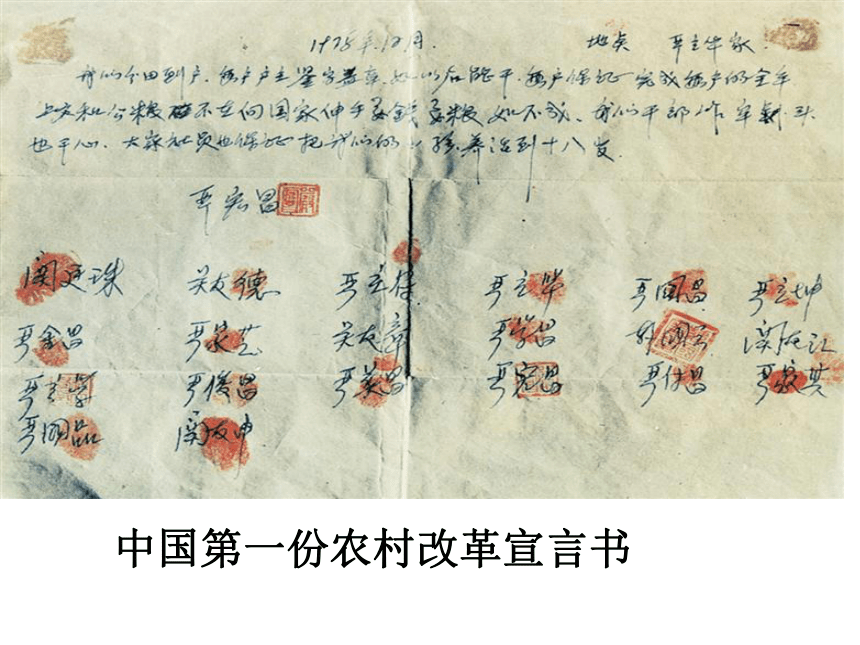 1978年12月. 地点 严立华家
我们分田到户.每户户主签字盖章.如以后能干.每户保证完成每户的全年
上交和公粮.不在向国家伸手要钱要粮.如不成.我们干部作牢剎头
也干心.大家社员也保证把我们的小孩养活到十八岁.
严宏昌
关廷珠 关友德 严立符 严立华 严国昌 严立坤
严金昌 严家芝 关友章 严学昌 韩国云 关友江
严立学 严俊昌 严美昌 严宏昌 严付昌 严家其
严国品 关友申
中国第一份农村改革宣言书